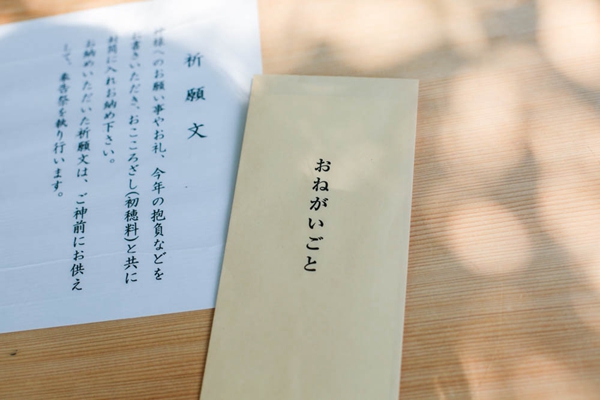 祈願文
神様へのお願い事やお礼、今年の抱負などを
お書きいただき、おこころざし(初穂料)と共に
お筒に入れお納め下さい。
お納めいただいた祈願文は、ご神前にお供え
して、奉告祭を執り行います。
おねがいごと